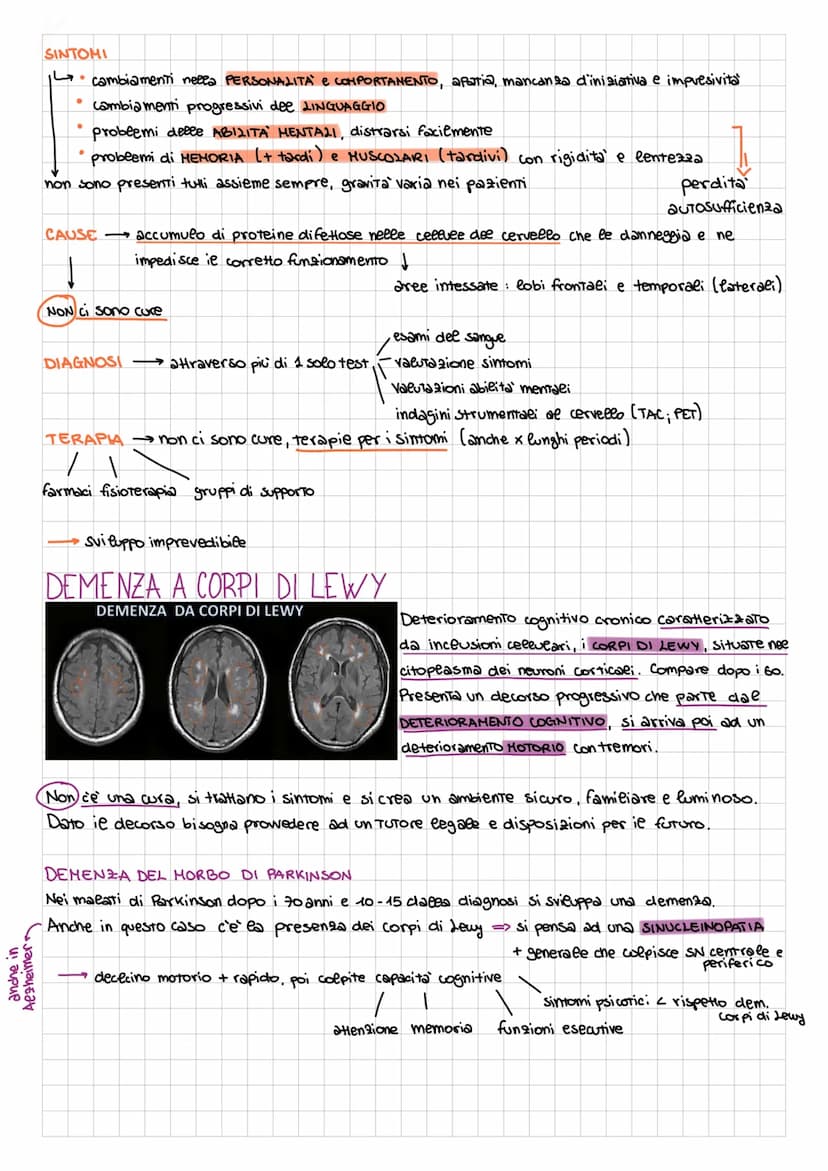 SINTOMI
• cambiamenti nella PERSONALITÀ e COMPORTAMENTO, apatia, mancanza d'iniziativa e impulsività
• cambiamenti progressivi del LINGUAGGIO
• problemi delle ABILITÀ MENTALI, distrarsi facilmente
• problemi di MEMORIA (+ tardi) e MUSCOLARI (tardivi) con rigidità e lentezza
non sono presenti tutti assieme sempre, gravità varia nei pazienti
perdita
autosufficienza
CAUSE → accumulo di proteine difettose nelle cellule del cervello che le danneggia e ne
impedisce il corretto funzionamento ↓
aree intessate : lobi frontali e temporali (laterali)
NON ci sono cure
esami del sangue
DIAGNOSI → attraverso più di 1 solo test, valutazione sintomi
valutazioni abilità mentali
indagini strumentali al cervello (TAC; PET)
TERAPIA → non ci sono cure, terapie per i sintomi (anche x lunghi periodi)
farmaci fisioterapia gruppi di supporto
→ sviluppo imprevedibile
DEMENZA A CORPI DI LEWY
DEMENZA DA CORPI DI LEWY
Deterioramento cognitivo cronico caratterizzato
da inclusioni cellulari, i CORPI DI LEWY, situate nel
citoplasma dei neuroni corticali. Compare dopo i 60.
Presenta un decorso progressivo che parte dal
DETERIORAMENTO COGNITIVO, si arriva poi ad un
deterioramento MOTORIO con tremori.
Non c'è una cura, si trattano i sintomi e si crea un ambiente sicuro, familiare e luminoso.
Dato il decorso bisogna provvedere ad un tutore legale e disposizioni per il futuro.
DEMENZA DEL MORBO DI PARKINSON
Nei malati di Parkinson dopo i 70 anni e 10-15 dalla diagnosi si sviluppa una demenza.
Anche in questo caso c'è la presenza dei corpi di Lewy => si pensa ad una SINUCLEINOPATIA
+ generale che colpisce SN centrale e
periferico
anche in
Alzheimer
→ declino motorio + rapido, poi colpite capacità cognitive
sintomi psicotici < rispetto dem.
corpi di Lewy
attenzione memoria funzioni esecutive